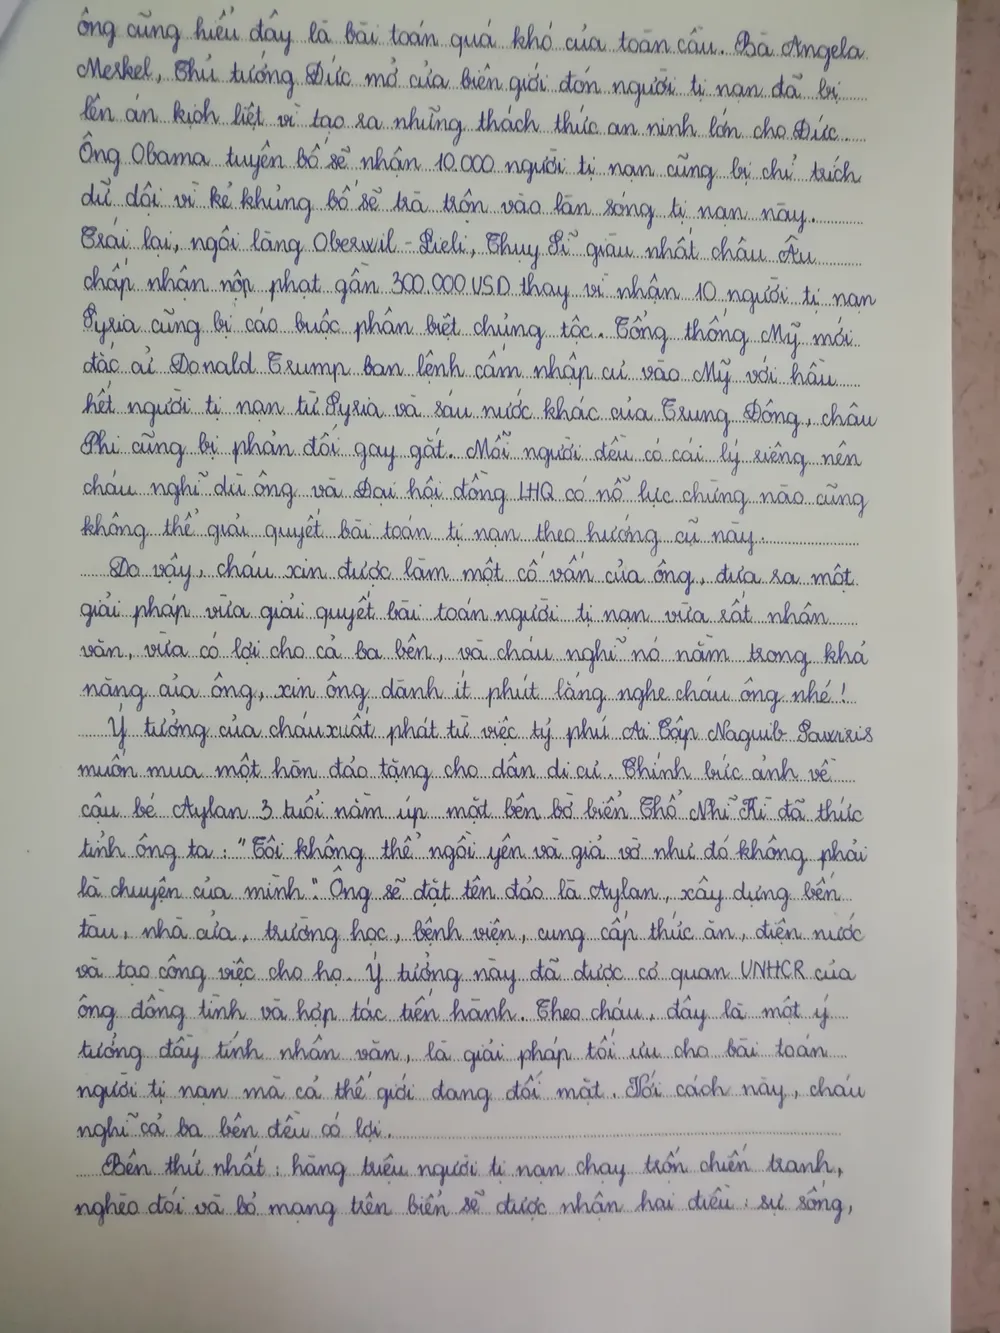 ông cũng hiểu đây là bài toán quá khó của toàn cầu. Bà Angela
Merkel, Thủ tướng Đức mở cửa biên giới đón người tị nạn đã bị
lên án kịch liệt vì tạo ra những thách thức an ninh lớn cho Đức.
Ông Obama tuyên bố sẽ nhận 10.000 người tị nạn cũng bị chỉ trích
dữ dội vì kẻ khủng bố sẽ trà trộn vào làn sóng tị nạn này.
Trái lại, ngôi làng Oberwil - Lieli, Thụy Sĩ giàu nhất châu Âu
chấp nhận nộp phạt gần 300.000 USD thay vì nhận 10 người tị nạn
Syria cũng bị cáo buộc phân biệt chủng tộc. Tổng thống Mỹ mới
đắc cử Donald Trump ban lệnh cấm nhập cư vào Mỹ với hầu
hết người tị nạn từ Syria và sáu nước khác của Trung Đông, châu
Phi cũng bị phản đối gay gắt. Mỗi người đều có cái lý riêng nên
cháu nghĩ dù ông và Đại hội đồng LHQ có nỗ lực chừng nào cũng
không thể giải quyết bài toán tị nạn theo hướng cũ này.
Do vậy, cháu xin được làm một cố vấn của ông, đưa ra một
giải pháp vừa giải quyết bài toán người tị nạn vừa rất nhân
văn, vừa có lợi cho cả ba bên, và cháu nghĩ nó nằm trong khả
năng của ông, xin ông dành ít phút lắng nghe cháu ông nhé!
Ý tưởng của cháu xuất phát từ việc tỷ phú Ai Cập Naguib Sawiris
muốn mua một hòn đảo tặng cho dân di cư. Chính bức ảnh về
cậu bé Aylan 3 tuổi nằm úp mặt bên bờ biển Thổ Nhĩ Kì đã thức
tỉnh ông ta: "Tôi không thể ngồi yên và giả vờ như đó không phải
là chuyện của mình". Ông sẽ đặt tên đảo là Aylan, xây dựng bến
tàu, nhà cửa, trường học, bệnh viện, cung cấp thức ăn, điện nước
và tạo công việc cho họ. Ý tưởng này đã được cơ quan UNHCR của
ông đồng tình và hợp tác tiến hành. Theo cháu, đây là một ý
tưởng đầy tính nhân văn, là giải pháp tối ưu cho bài toán
người tị nạn mà cả thế giới đang đối mặt. Với cách này, cháu
nghĩ cả ba bên đều có lợi.
Bên thứ nhất: hàng triệu người tị nạn chạy trốn chiến tranh,
nghèo đói và bỏ mạng trên biển sẽ được nhận hai điều: sự sống,